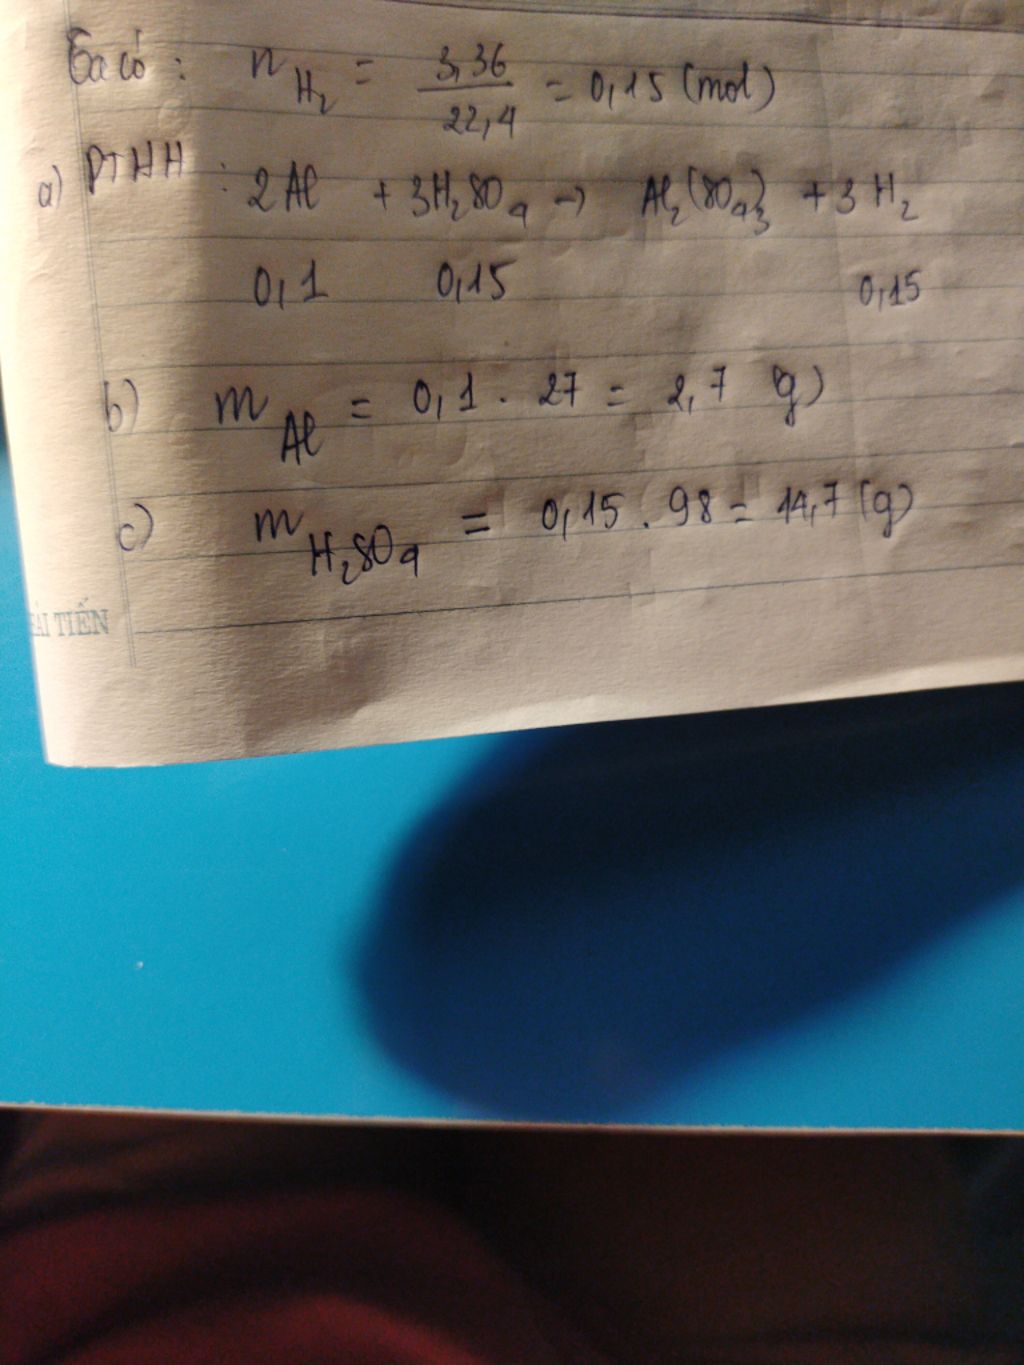 Ta có : n H₂ = 3,36 / 22,4 = 0,15 (mol)
a) PTHH : 2Al + 3H₂SO₄ → Al₂(SO₄)₃ + 3H₂
0,1 0,15 0,15
b) m Al = 0,1 . 27 = 2,7 g)
c) m H₂SO₄ = 0,15 . 98 = 14,7 (g)
ẢI TIẾN